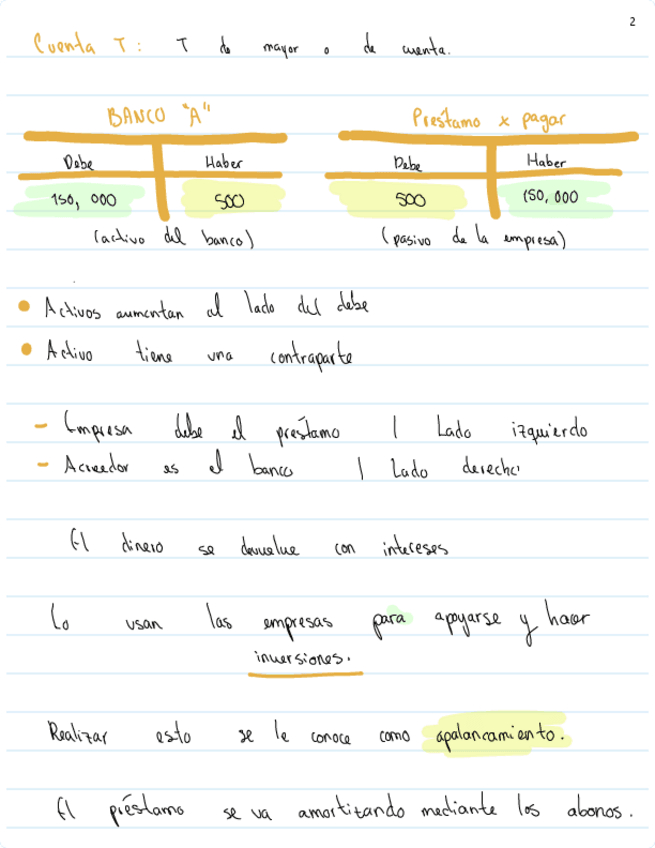 2
Cuenta T: T de mayor o de cuenta.
BANCO "A" Prestamo x pagar
Debe Haber Debe Haber
150, 000 500 500 150, 000
(activo del banco) (pasivo de la empresa)
• Activos aumentan al lado del debe
• Activo tiene una contraparte
- Empresa debe el préstamo | Lado izquierdo
- Acreedor es el banco | Lado derecho
El dinero se devuelve con intereses
Lo usan las empresas para apoyarse y hacer
inversiones.
Realizar esto se le conoce como apalancamiento.
El préstamo se va amortizando mediante los abonos.